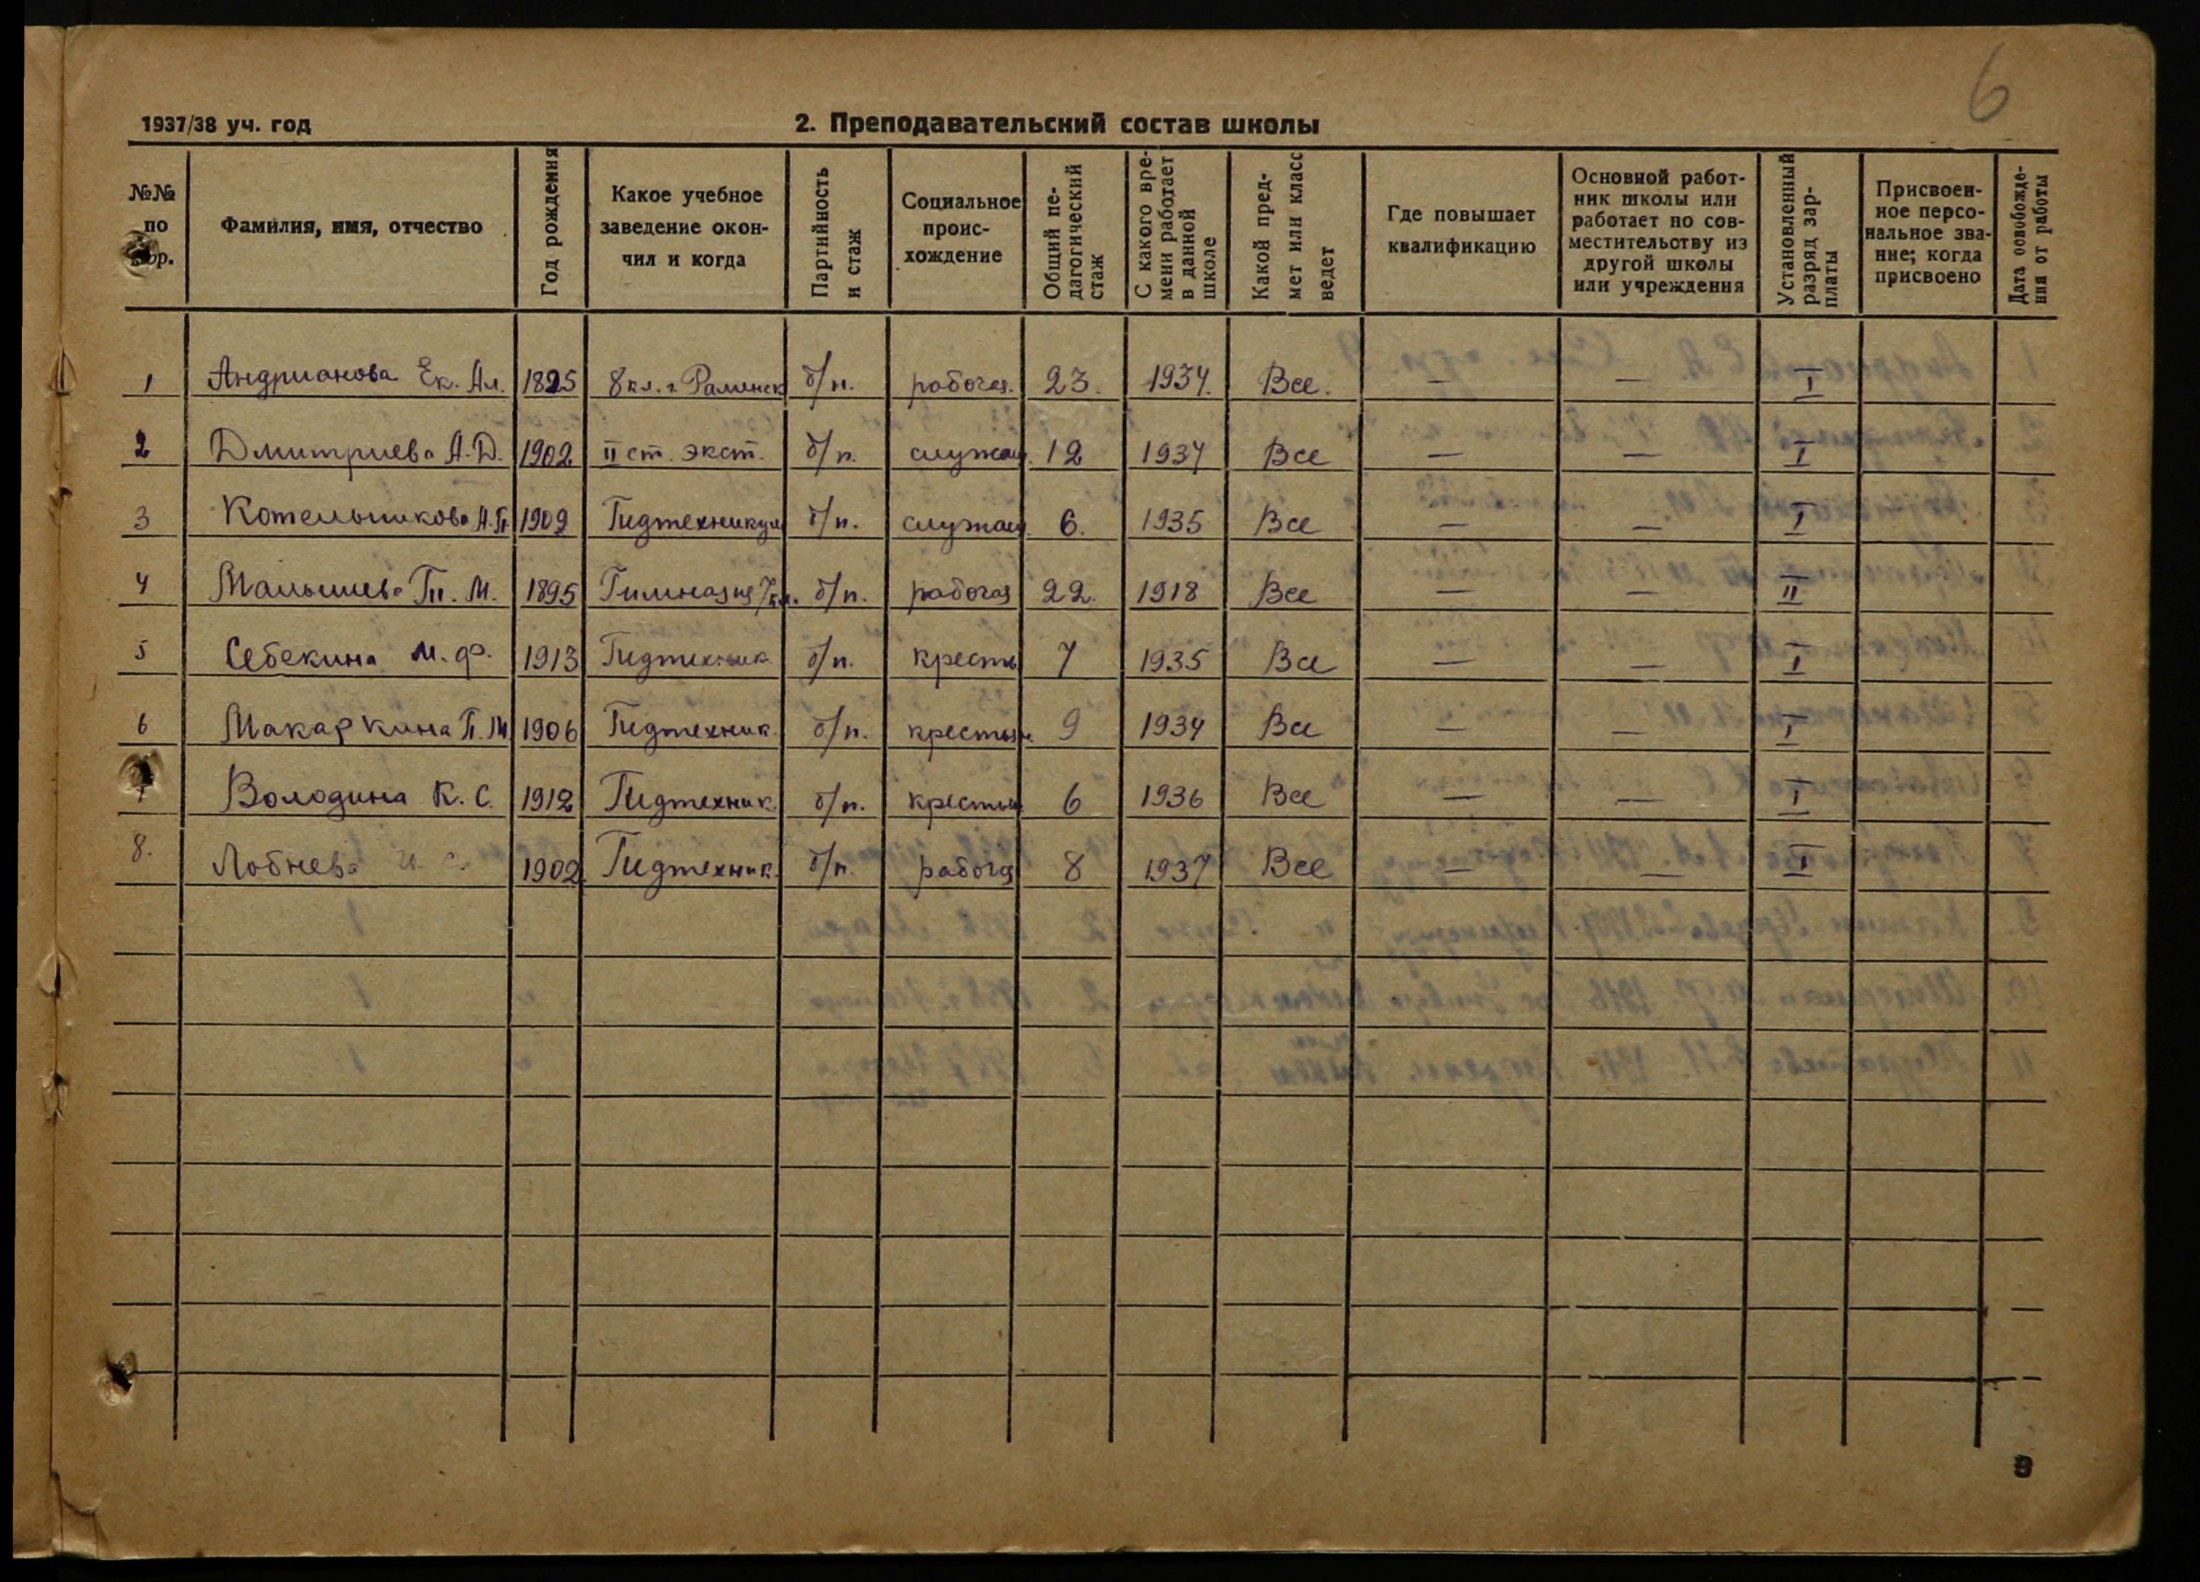 6
1937/38 уч. год
2. Преподавательский состав школы
№№ по пор.
Фамилия, имя, отчество
Год рождения
Какое учебное заведение окончил и когда
Партийность и стаж
Социальное происхождение
Общий педагогический стаж
С какого времени работает в данной школе
Какой предмет или класс ведет
Где повышает квалификацию
Основной работник школы или работает по совместительству из другой школы или учреждения
Установленный разряд зарплаты
Присвоенное персональное звание; когда присвоено
Дата освобождения от работы
1 Андрианова Ек. Ал. 1895 8 кл. г. Раменск б/п. рабочая. 23. 1934. Все. — — I
2 Дмитриева А.Д. 1902 II ст. экст. б/п. служащ. 12 1937 Все — — I
3 Котельникова А.П. 1909 Педтехникум б/п. служащ. 6. 1935 Все — — I
4 Малышева М. 1895 Гимназия 7 кл. б/п. рабочая 22. 1918 Все — — II
5 Себекина М.Ф. 1913 Педтехник б/п. кресть 7 1935 Все — — I
6 Макаркина П.М. 1906 Педтехник. б/п. крестьян. 9 1934 Все — — I
7 Володина К.С. 1912 Педтехник. б/п. крестьян 6 1936 Все — — I
8. Лобнева 1902 Педтехник. б/п. рабочая 8 1937 Все — — I
9